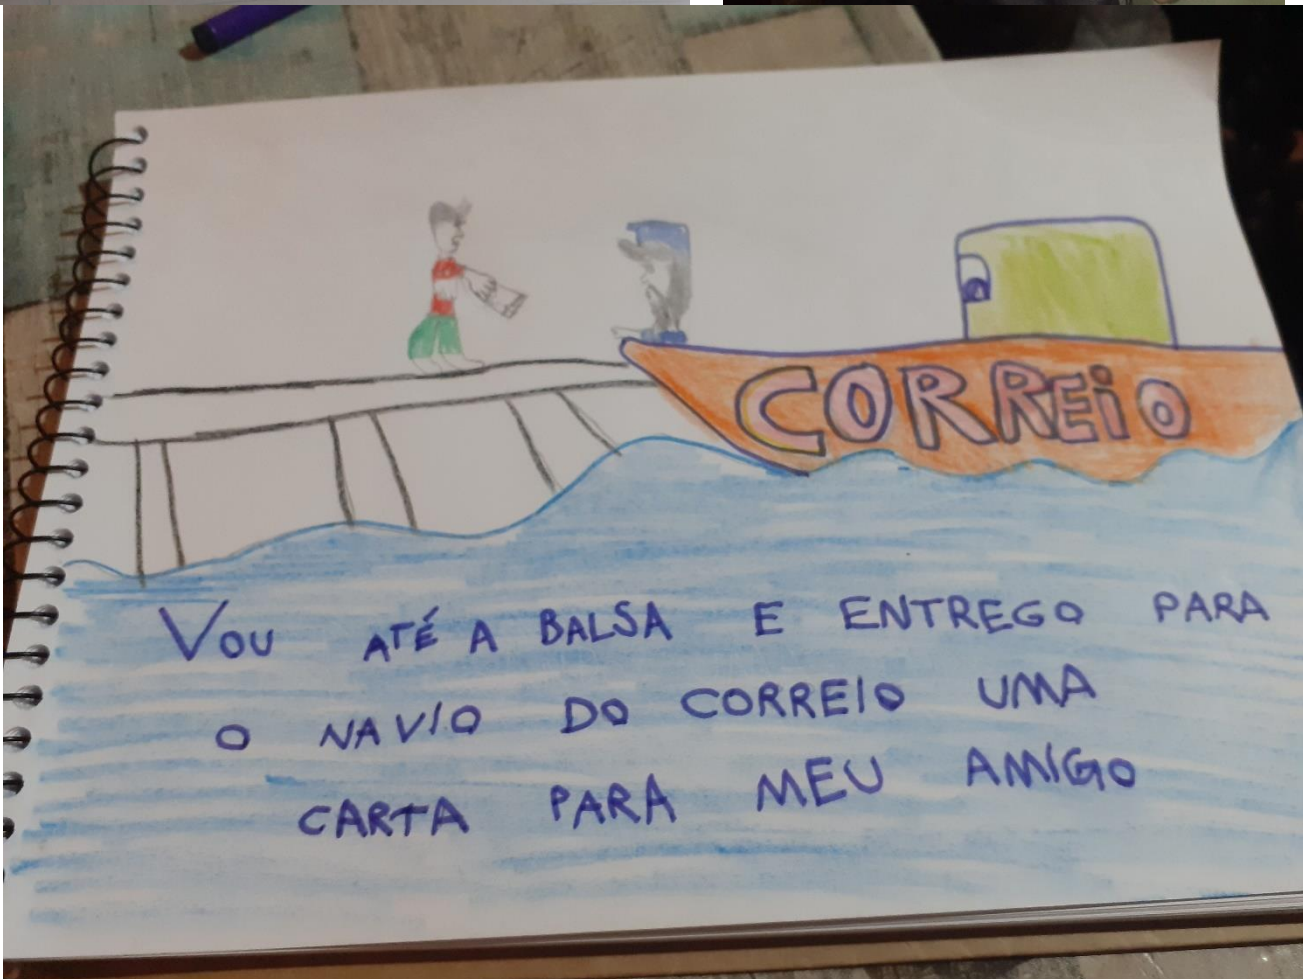 CORREiO
VOU ATÉ A BALSA E ENTREGO PARA
O NAVIO DO CORREIO UMA
CARTA PARA MEU AMIGO